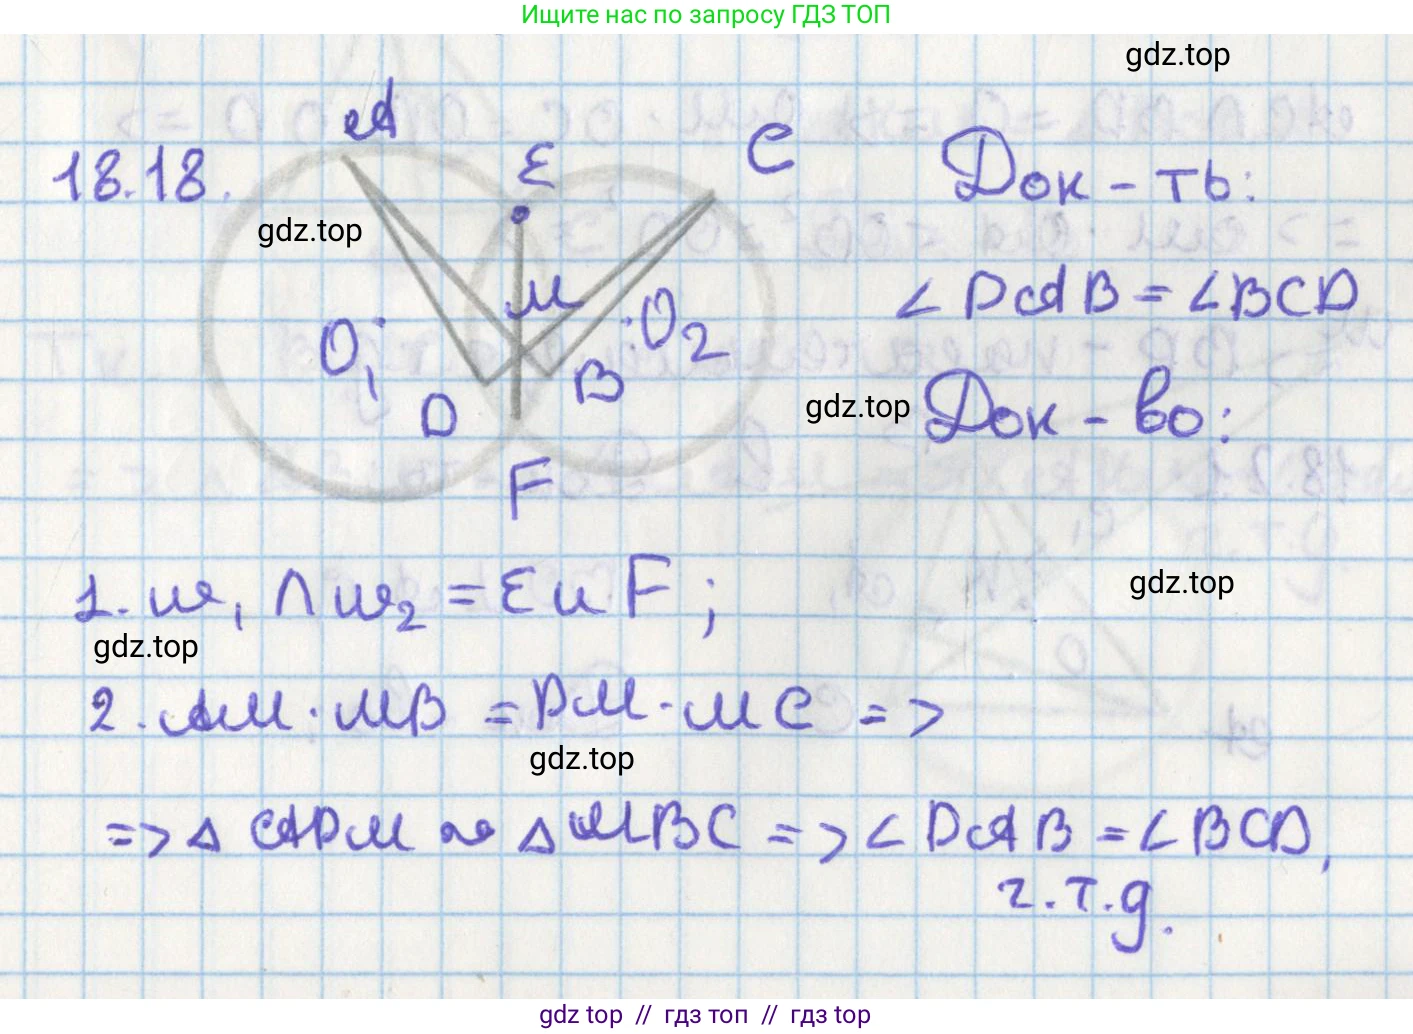 Ищите нас по запросу ГДЗ ТОП
gdz.top
18.18.
A
E
C
Док-ть:
gdz.top
∠DAB = ∠BCD
M
O₁
O₂
D
B
gdz.top
Док-во:
F
1. ω₁ ∩ ω₂ = E и F;
gdz.top
gdz.top
2. AM · MB = DM · MC =>
gdz.top
=> △ ADM ~ △ MBC => ∠DAB = ∠BCD,
ч.т.д.
gdz top // гдз топ // гдз top